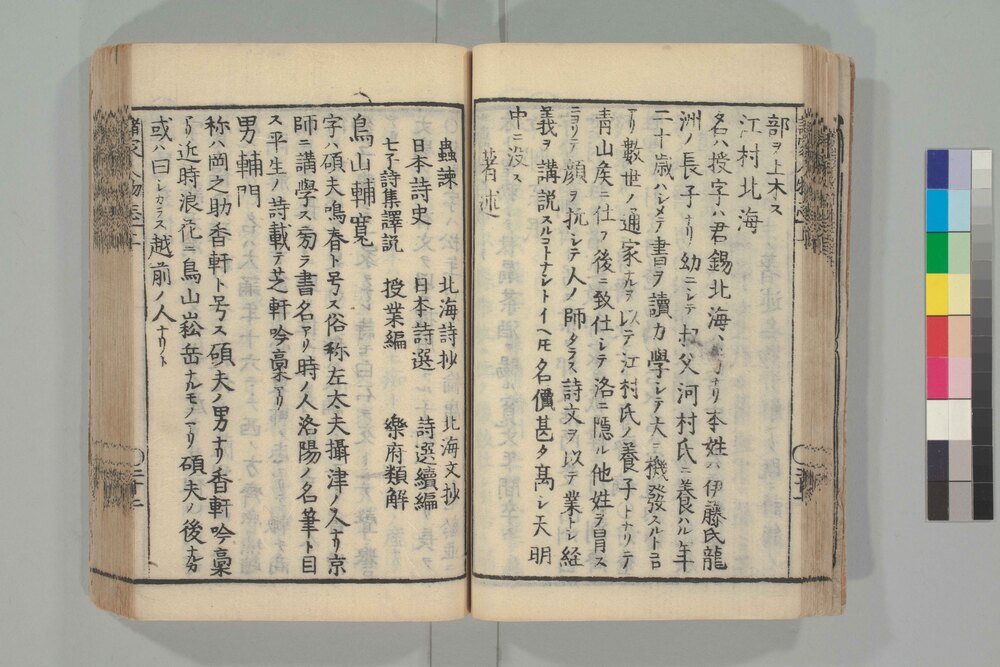 部ヲ上木ス
江村北海
名ハ授字ハ君錫北海ハ ナリ本姓ハ伊藤氏龍
洲ノ長子ナリ幼ニシテ叔父河村氏ニ養ハル年
二十歳ハシメテ書ヲ讀力學シテ大ニ機發スルトコロ
アリ數世ノ通家ナルヲ以テ江村氏ノ養子トナリテ
青山侯ニ仕フ後ニ致仕シテ洛ニ隠ル他姓ヲ冒ス
ニヨリテ顔ヲ抗シテ人ノ師タラス詩文ヲ以テ業トシ経
義ヲ講説スルコトナシトイヘトモ名價甚タ高シ天明
中ニ没ス
著述
蟲諫 北海詩抄 北海文抄
日本詩史 日本詩選 詩選續編
七才詩集譯説 授業編 樂府類解
鳥山輔寛
字ハ碩夫鳴春ト号ス俗称左太夫攝津ノ人ナリ京
師ニ講學ス旁ラ書名アリ時ノ人洛陽ノ名筆ト目
ス平生ノ詩載テ芝軒吟稾ニアリ
男輔門
称ハ岡之助香軒ト号ス碩夫ノ男ナリ香軒吟稾
アリ近時浪花ニ鳥山崧岳ナルモノアリ碩夫ノ後ナルカ
或ハ曰シカラス越前ノ人ナリト